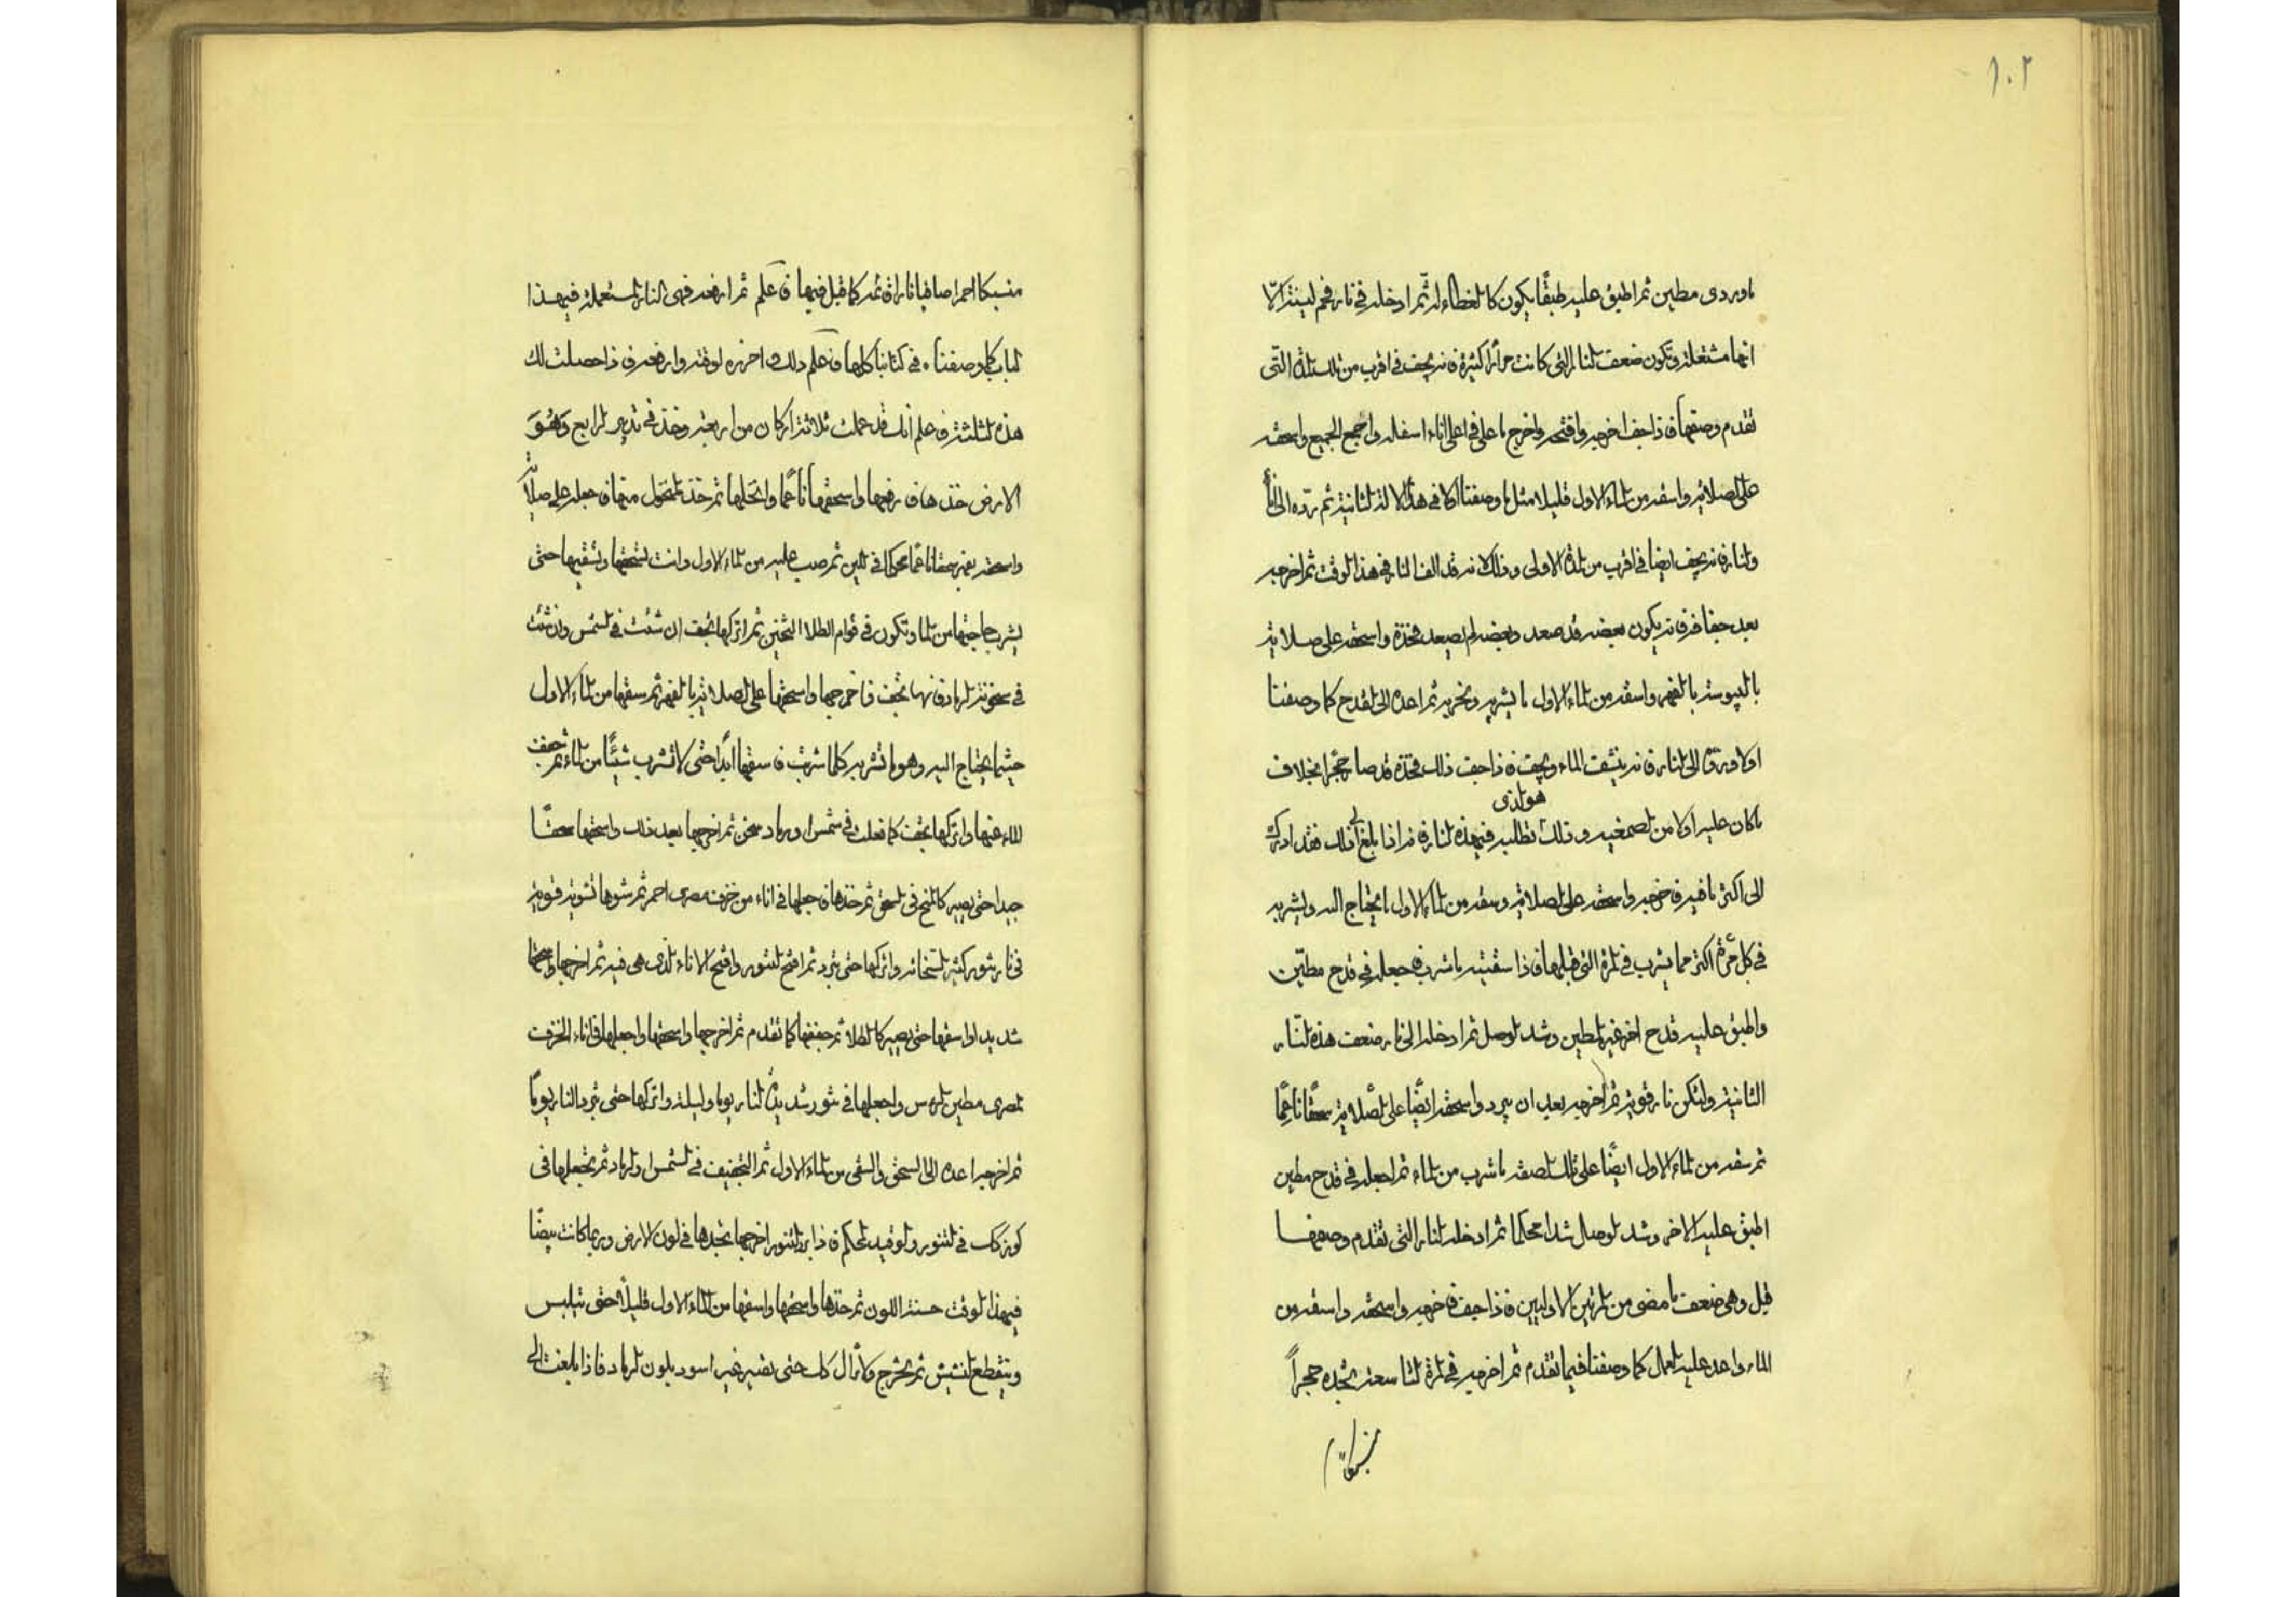 ١٠٢
ماوردى مطين ثم اطبق عليه طبقًا يكون كالغطاء له ثم ادخله في نار فحم لينة الّا
انها مشتعلة وتكون ضعف النار التى كانت حرا كثيرة فانه يجف في اقرب من تلك المدة التّى
تقدم وصفها فاذا جف اخرجه وافتحه واخرج ما على في اعلى اناء اسفله واجمع الجميع واسحقه
على الصلاية واسقه من الماء الاول قليلا مثل ما وصفنا اولا في هذا الالة الثانية ثم ردّه الى الاناء
والنار فانه يجف ايضا في اقرب من المدة الاولى وذلك لانه قد الف النار في هذا الوقت ثم اخرجه
بعد جفافه فانه يكون بعضه قد صعد وبعضه لم يصعد فخذه واسحقه على صلاية
باليبوسة بالفهر واسقه من الماء الاول ما يشربه ويخزنه ثم اعده الى القدح كما وصفنا
اولا ورده الى النار فانه ينشف الماء ويجف فاذا جف ذلك فخذه قد صار حجرًا بخلاف
ما كان عليه اولا من الصمغيه وذلك هو الذى تطلبه فى هذه النار فانه اذا بلغ الى ذلك فقد ادرك
الى اكثر ما فيه فاخرجه واسحقه على الصلاية وسقه من الماء الاول ما يحتاج اليه ويشربه
في كل مرّة اكثر مما يشرب في المرة التى قبلها فاذا سقيته ما شرب فاجعله في قدح مطيّن
واطبق عليه قدح اخر غير مطين وشد الوصل ثم ادخله الى نار ضعف هذه النّار
الثانية ولتكن نار قوية ثم اخرجه بعد ان يبرد واسحقه ايضًا على الصلاية سحقًا ناعمًا
ثم سقه من الماء الاول ايضًا على تلك الصفة ما شرب من الماء ثم اجعله في قدح مطين
اطبق عليه الاخر وشد الوصال شدا محكما ثم ادخله النار التى تقدم وصفها
قبل وهى ضعف ما مضى من المرتين الاوليين فاذا جف فاخرجه واسحقه واسقه من
الماء واعد عليه العمل كما وصفنا فيما تقدم ثم اخرجه في المرة التاسعة تجده حجراً
منسبكا احمر صافيا نارا قائمة كما قيل فيها فاعلم ثم ارفعه فهى النار المستعملة في هذا
الباب كما وصفنا في كتابنا كلها فاعلم ذلك واحرزه لوقته وارفعه فاذا حصلت لك
هذه الثلثة فاعلم انك قد عملت ثلاثة اركان من اربعة وخذ في تدبير الرابع وَهُوَ
الارض خذها فارفعها واسحقها ناعمًا وانخلها ثم خذ المنخول منها فاجعله على صلاية
واسحقه بفهر سحقا ناعمًا محركا في اللين ثم صب عليه من الماء الاول وانت تسحقها وتسقيها حتى
يشرب حاجتها من الماء وتكون في قوام الطلا الثخين ثم اتركها تجف ان شئت في الشمس وان شئت
في سخونة الرماد فانها تجف فاخرجها واسحقها على الصلاية بالفهر ثم سقها من الماء الاول
حيثما يحتاج اليه وهو ما تشربه كلما شربت فاسقها ابدا حتى لا تشرب شيئًا من الماء ثم جفف
الماء عنها واتركها تجف كما فعلت في شمس او رماد سخن ثم اخرجها بعد ذلك واسحقها سحقًا
جيدا حتى يصير كالمخ في السحق ثم خذها فاجعلها في اناء من خزف مصرى احمر ثم شوها تشوية قوية
فى نار تنور كثير السخانة واتركها حتى يبرد ثم افتح التنور وافتح الاناء الذى هى فيه ثم اخرجها واسحقها
شديدا واسقها حتى يصير كالطلا ثم جففها كما تقدم ثم اخرجها واسحقها واجعلها في اناء الخزف
المصرى مطين الراس واجعلها في تنور شديد النار يوما وليلة واتركها حتى تبرد النار يومًا
ثم اخرجه اعده الى السحق والسقى من الماء الاول ثم التجفيف في الشمس او الرماد ثم تجعلها في
كوز كك في التنور والوقيد المحكم فاذا برد التنور اخرجها تجدها في لون الارض وربما كانت بيضًا
في هذا الوقت حسنة اللون ثم خذها واسحقها واسقها من الماء الاول قليلًا حتى تيبس
وينقطع النشيش ثم تخرج ولا تزال كك حتى يصير غير اسود بلون الرماد فاذا بلغت الى